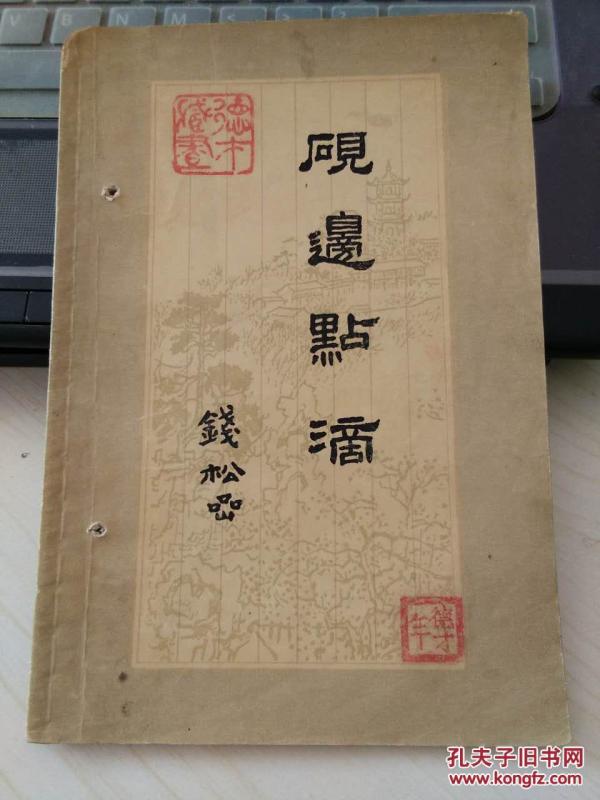 硯邊點滴
錢松嵒
德才
藏書
孔夫子旧书网
www.kongfz.com